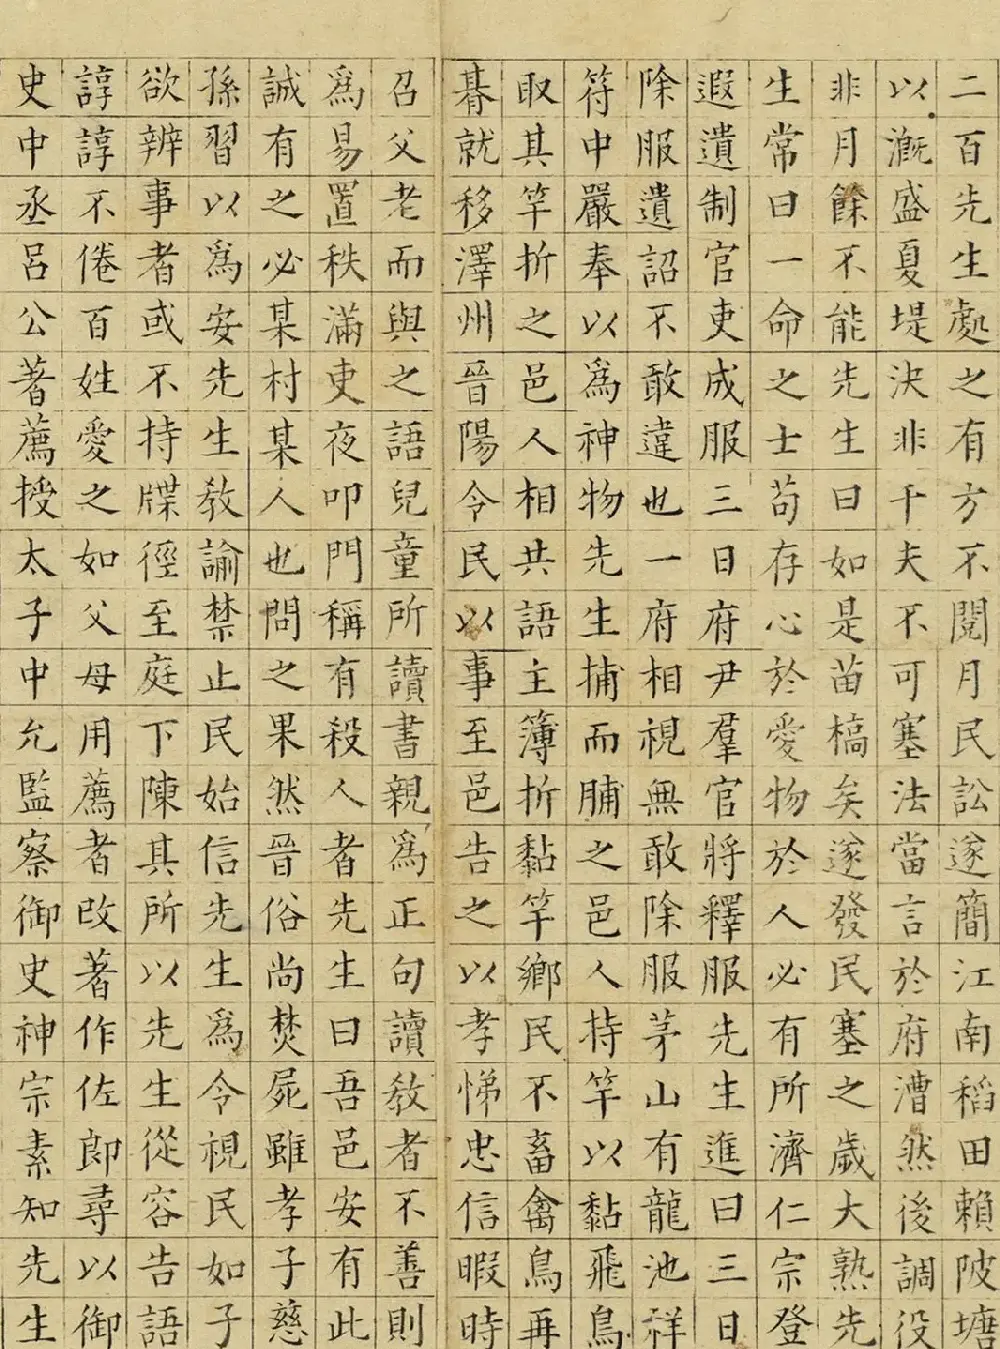 二百先生處之有方不閱月民訟遂簡江南稻田賴陂塘
以溉盛夏堤決非千夫不可塞法當言於府漕然後調役
非月餘不能先生曰如是苗槁矣遂發民塞之歲大熟先
生常曰一命之士苟存心於愛物於人必有所濟仁宗登
遐遺制官吏成服三日府尹羣官將釋服先生進曰三日
除服遺詔不敢違也一府相視無敢除服茅山有龍池祥
符中嚴奉以為神物先生捕而脯之邑人持竿以黏飛鳥
取其竿折之邑人相共語主簿折黏竿鄉民不畜禽鳥再
朞就移澤州晉陽令民以事至邑告之以孝悌忠信暇時
召父老而與之語兒童所讀書親為正句讀教者不善則
為易置秩滿吏夜叩門稱有殺人者先生曰吾邑安有此
誠有之必某村某人也問之果然晉俗尚焚屍雖孝子慈
孫習以為安先生教諭禁止民始信先生為令視民如子
欲辨事者或不持牒徑至庭下陳其所以先生從容告語
諄諄不倦百姓愛之如父母用薦者改著作佐郎尋以御
史中丞呂公著薦授太子中允監察御史神宗素知先生